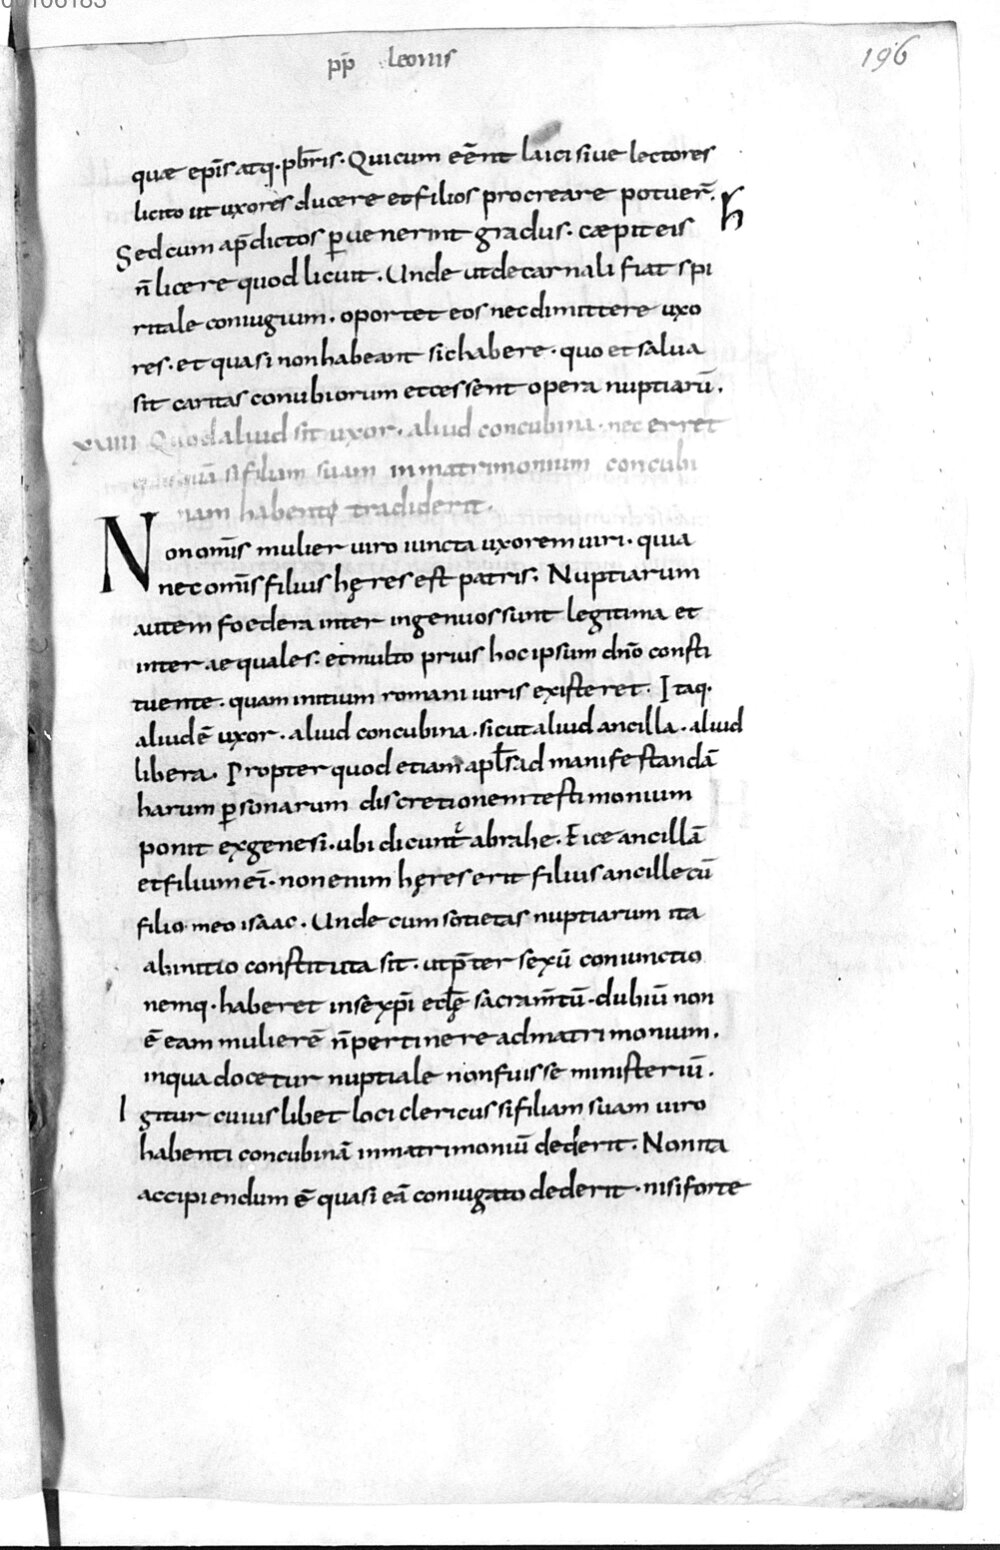 00106183
pp̄ leonis
196
quæ ep̄is atq·pb̄ris· Quicum eēnt laici siue lectores
licito ut uxores ducere et filios procreare potuer̄·
h
Sed cum ap̄dictos puenerint gradus· cæpit eis
n̄ licere quod licuit· Unde ut de carnali fiat spi
ritale coniugium· oportet eos nec dimittere uxo
res· et quasi non habeant sic habere· quo et salua
sit caritas conubiorum et cessent opera nuptiarū·
xuiiii Quod aliud sit uxor· aliud concubina· nec erret
quisquā si filiam suam in matrimonium concubi
nam habenti tradiderit·
Non omīs mulier uiro iuncta uxorem uiri· quia
nec omīs filius hęres est patris· Nuptiarum
autem foedera inter ingenuos sunt legitima et
inter aequales· et multo prius hoc ipsum dn̄o consti
tuente· quam initium romani iuris existeret· Itaq·
aliud ē uxor· aliud concubina· sicut aliud ancilla· aliud
libera· Propter quod etiam apl̄s ad manifestandā
harum psonarum discretionem testimonium
ponit ex genesi· ubi dicunt̄ abrahe· Eice ancillā
et filium eī· non enim hęres erit filius ancille cū
filio meo isaac· Unde cum societas nuptiarum ita
ab initio constituta sit· ut p̄ter sexū coniunctio
nemq· haberet in se xp̄i eclę̄ sacram̄tū· dubiū non
ē eam mulierē n̄ pertinere ad matrimonium·
in qua docetur nuptiale non fuisse ministeriū·
Igitur cuiuslibet loci clericus si filiam suam uiro
habenti concubinā in matrimoniū dederit· Non ita
accipiendum ē quasi eā coniugato dederit· nisi forte